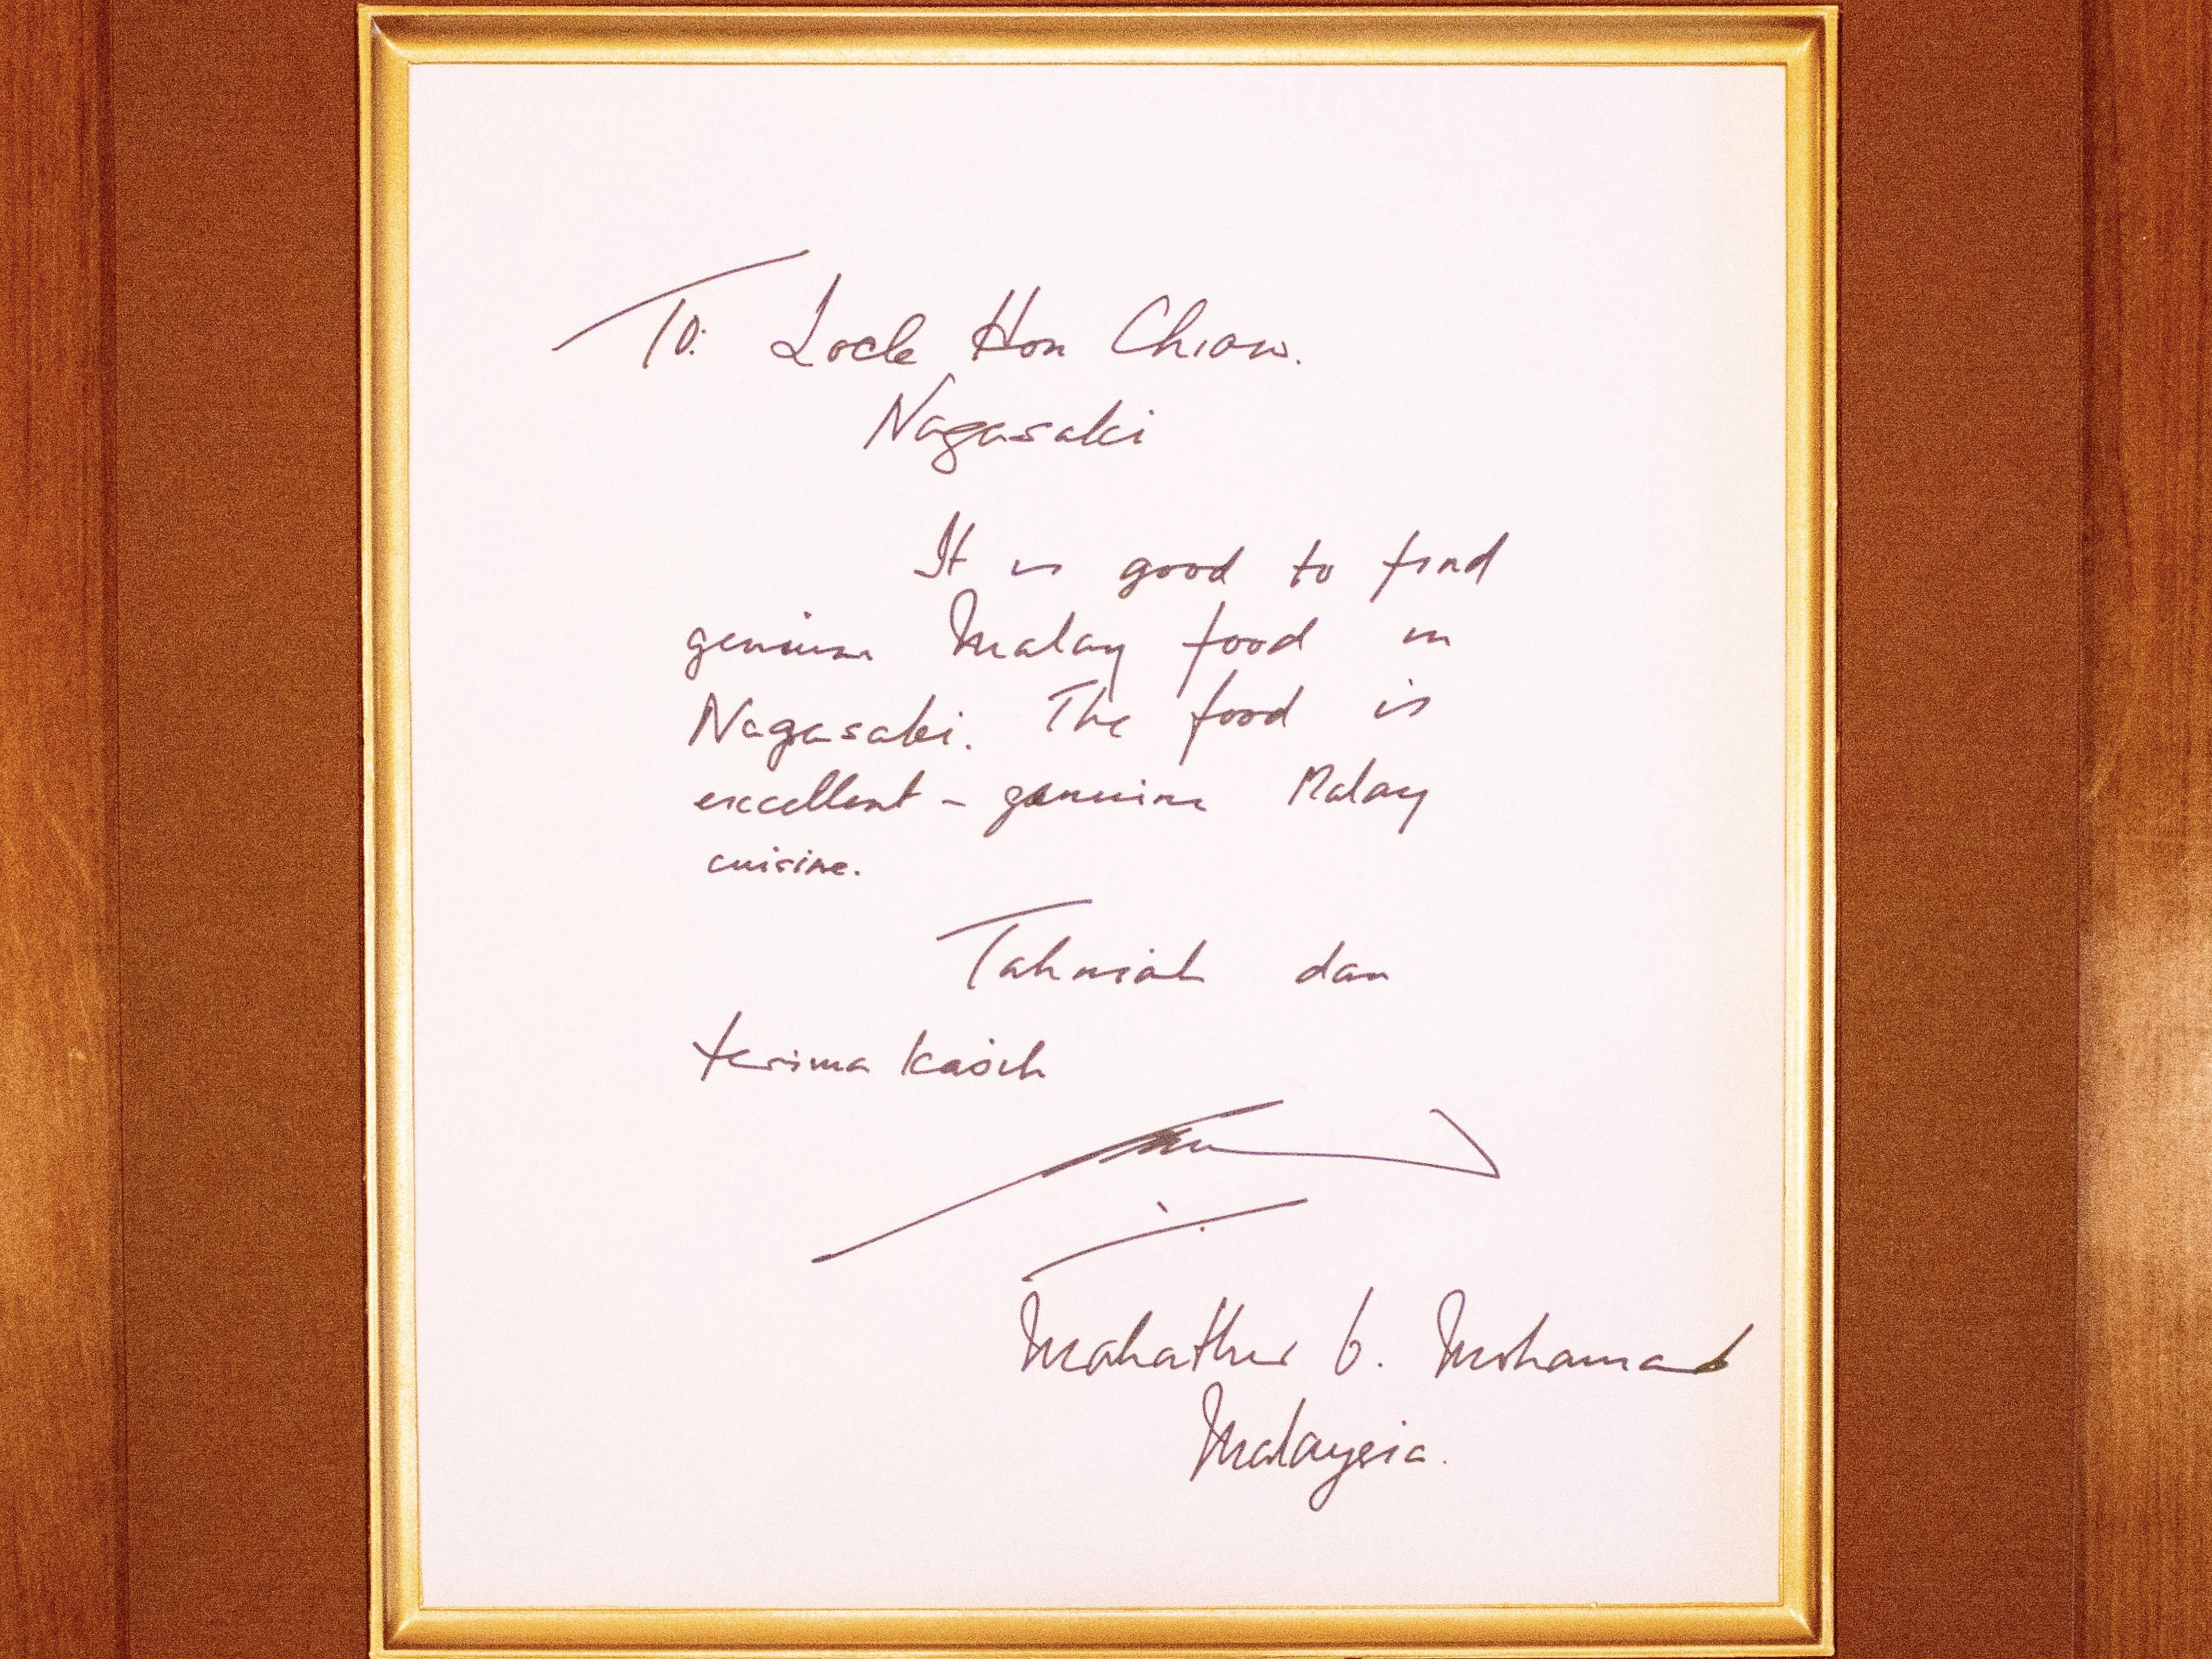 To: Lock Hon Chiow.
Nagasaki
It is good to find
genuine Malay food in
Nagasaki. The food is
excellent - genuine Malay
cuisine.
Tahniah dan
terima kasih
Mahathir b. Mohamad
Malaysia.